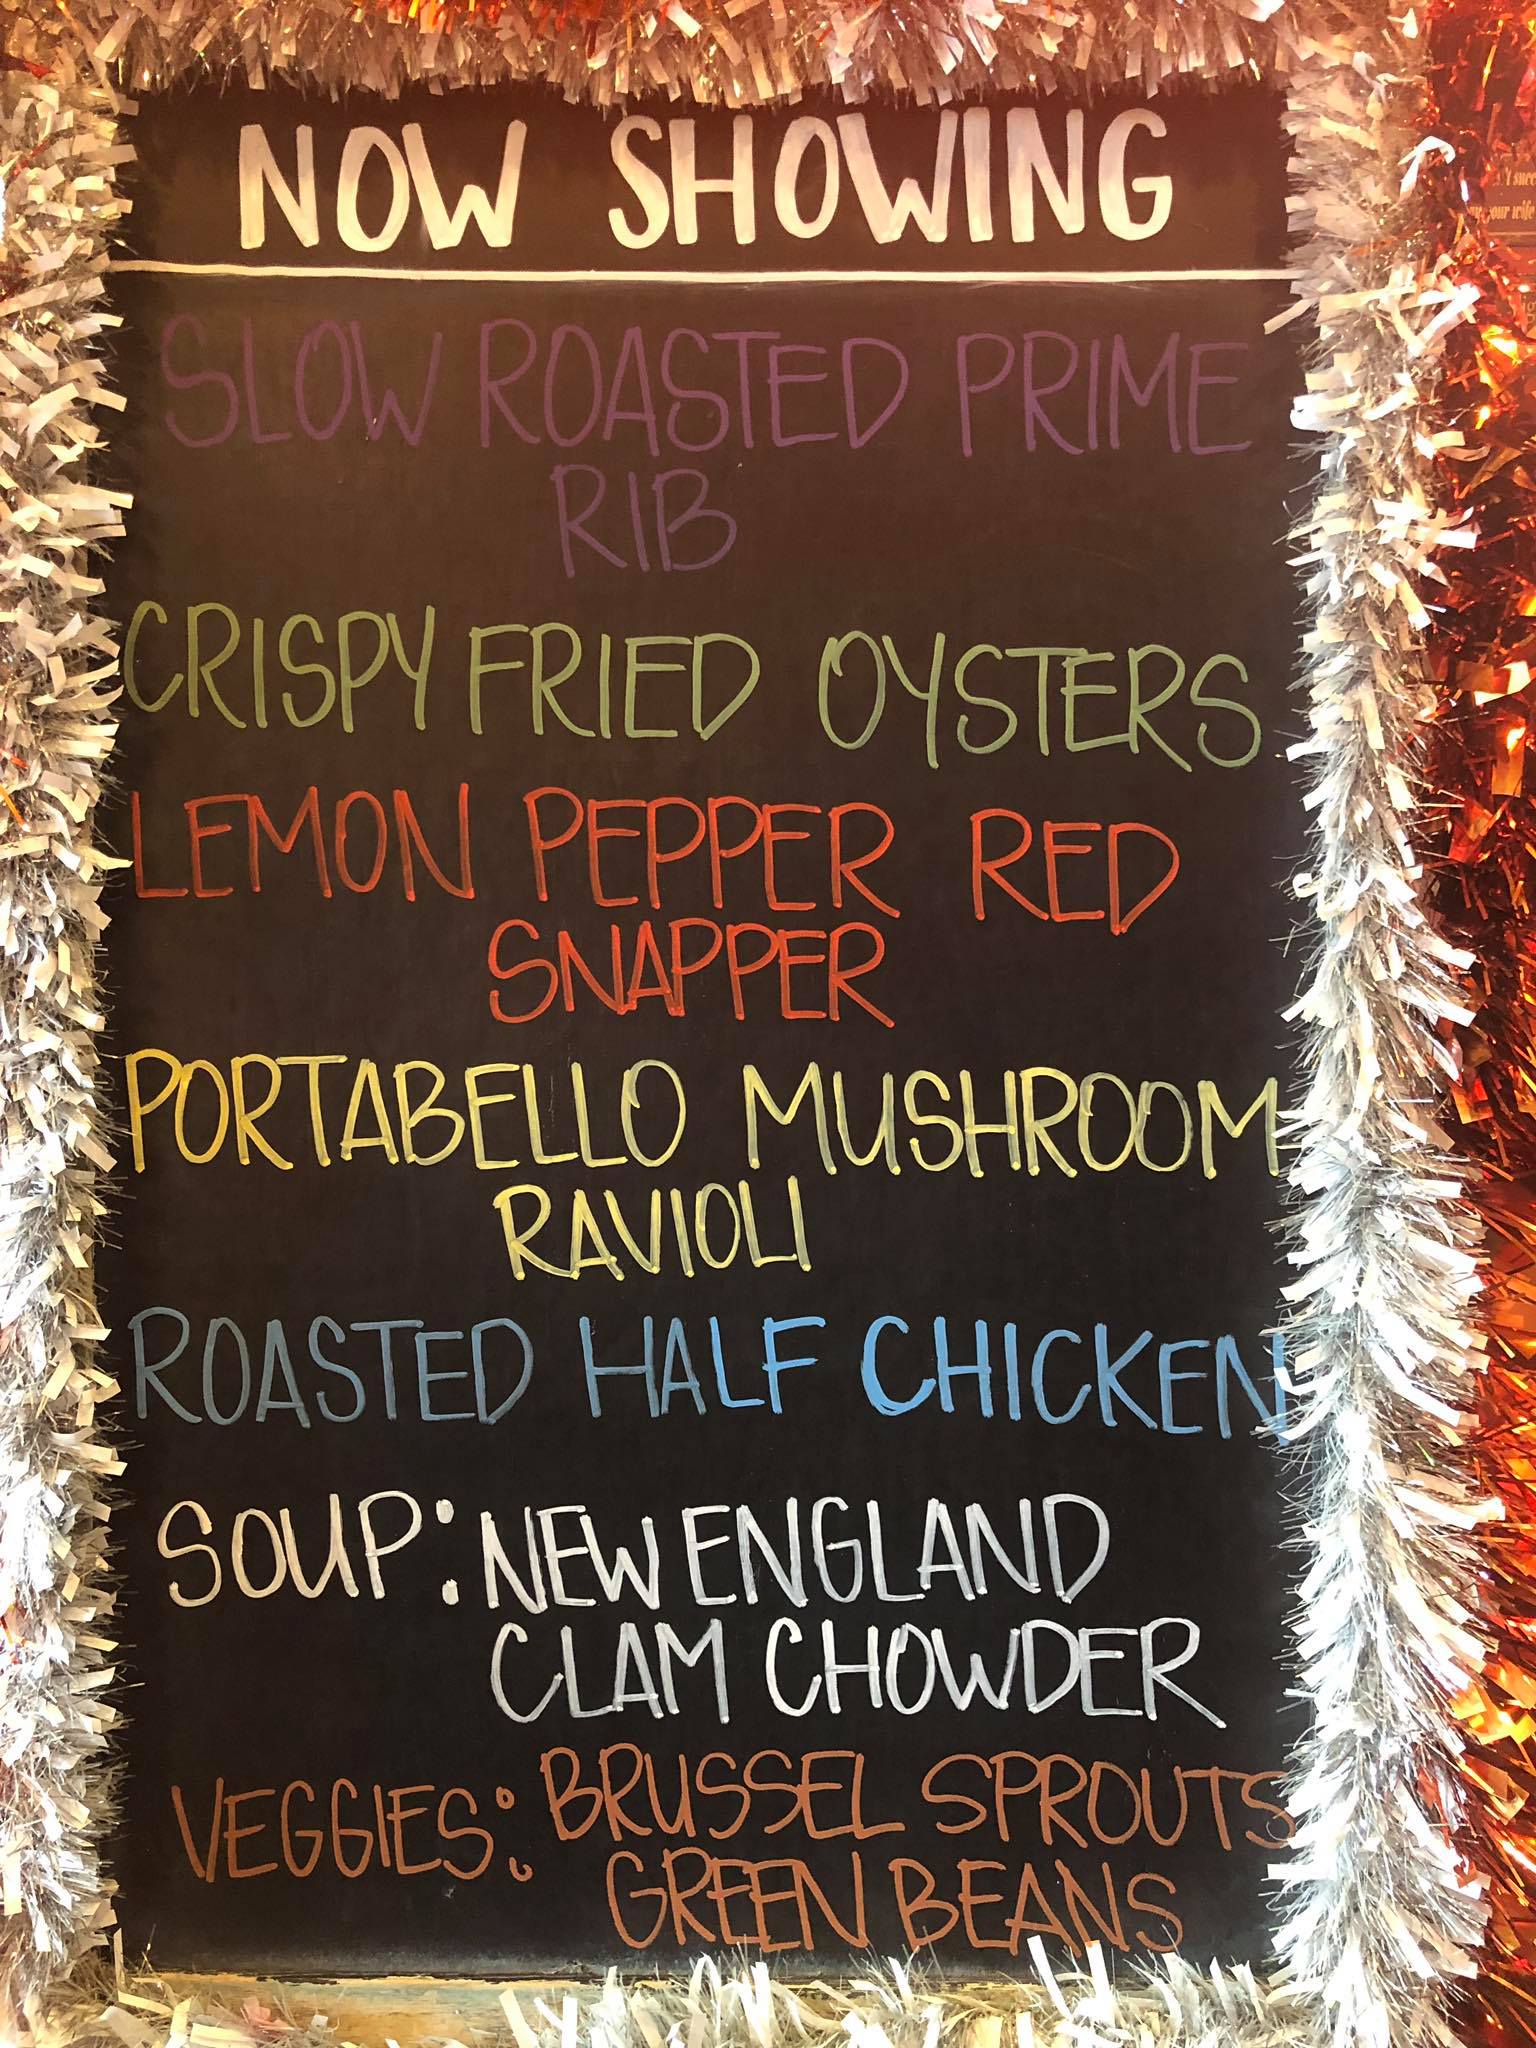 NOW SHOWING
SLOW ROASTED PRIME
RIB
CRISPY FRIED OYSTERS
LEMON PEPPER RED
SNAPPER
PORTABELLO MUSHROOM
RAVIOLI
ROASTED HALF CHICKEN
SOUP: NEW ENGLAND
CLAM CHOWDER
VEGGIES: BRUSSEL SPROUTS
GREEN BEANS
your wife